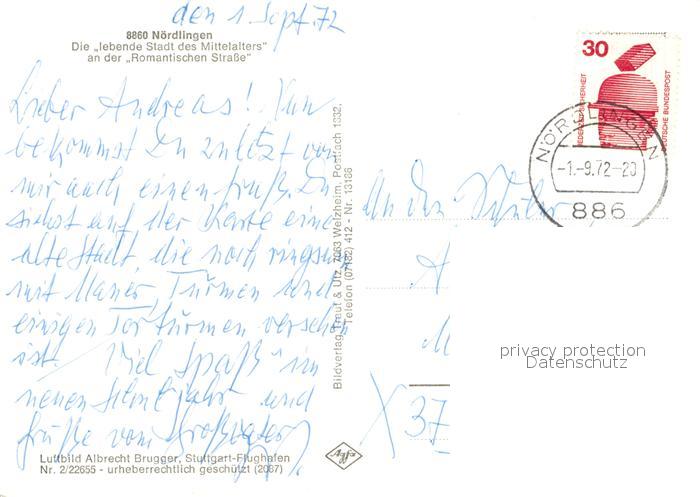 den 1. Sept. 72
8860 Nördlingen
Die „lebende Stadt des Mittelalters"
an der „Romantischen Straße"
Lieber Andreas! Nun
bekommst Du zuletzt von
mir auch einen Gruß. Du
siehst auf der Karte eine
alte Stadt, die noch ringsum
mit Mauer, Türmen und
einigen Tortürmen versehen
ist. Viel Spaß im
neuen Schuljahr und
Grüße vom Großvater
Luftbild Albrecht Brugger, Stuttgart-Flughafen
Nr. 2/22655 - urheberrechtlich geschützt (2087)
Bildverlag Traut & Utz, 7063 Welzheim, Postfach 1332,
Telefon (07182) 412 - Nr. 13186
Agfa
30
JEDERZEIT SICHERHEIT
DEUTSCHE BUNDESPOST
NÖRDLINGEN
-1.-9.72-20
886
An den Schüler
A
M
X 37
privacy protection
Datenschutz